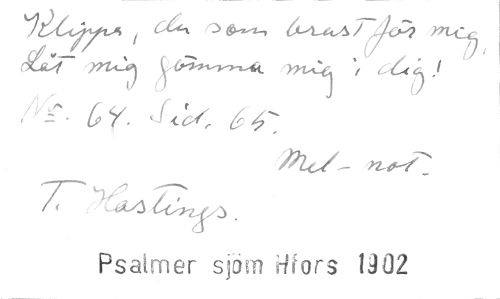 Klippa, du som brast för mig,
Låt mig gömma mig i dig!
No. 64. Sid. 65.
Mel-not.
T. Hastings.
Psalmer sjöm Hfors 1902